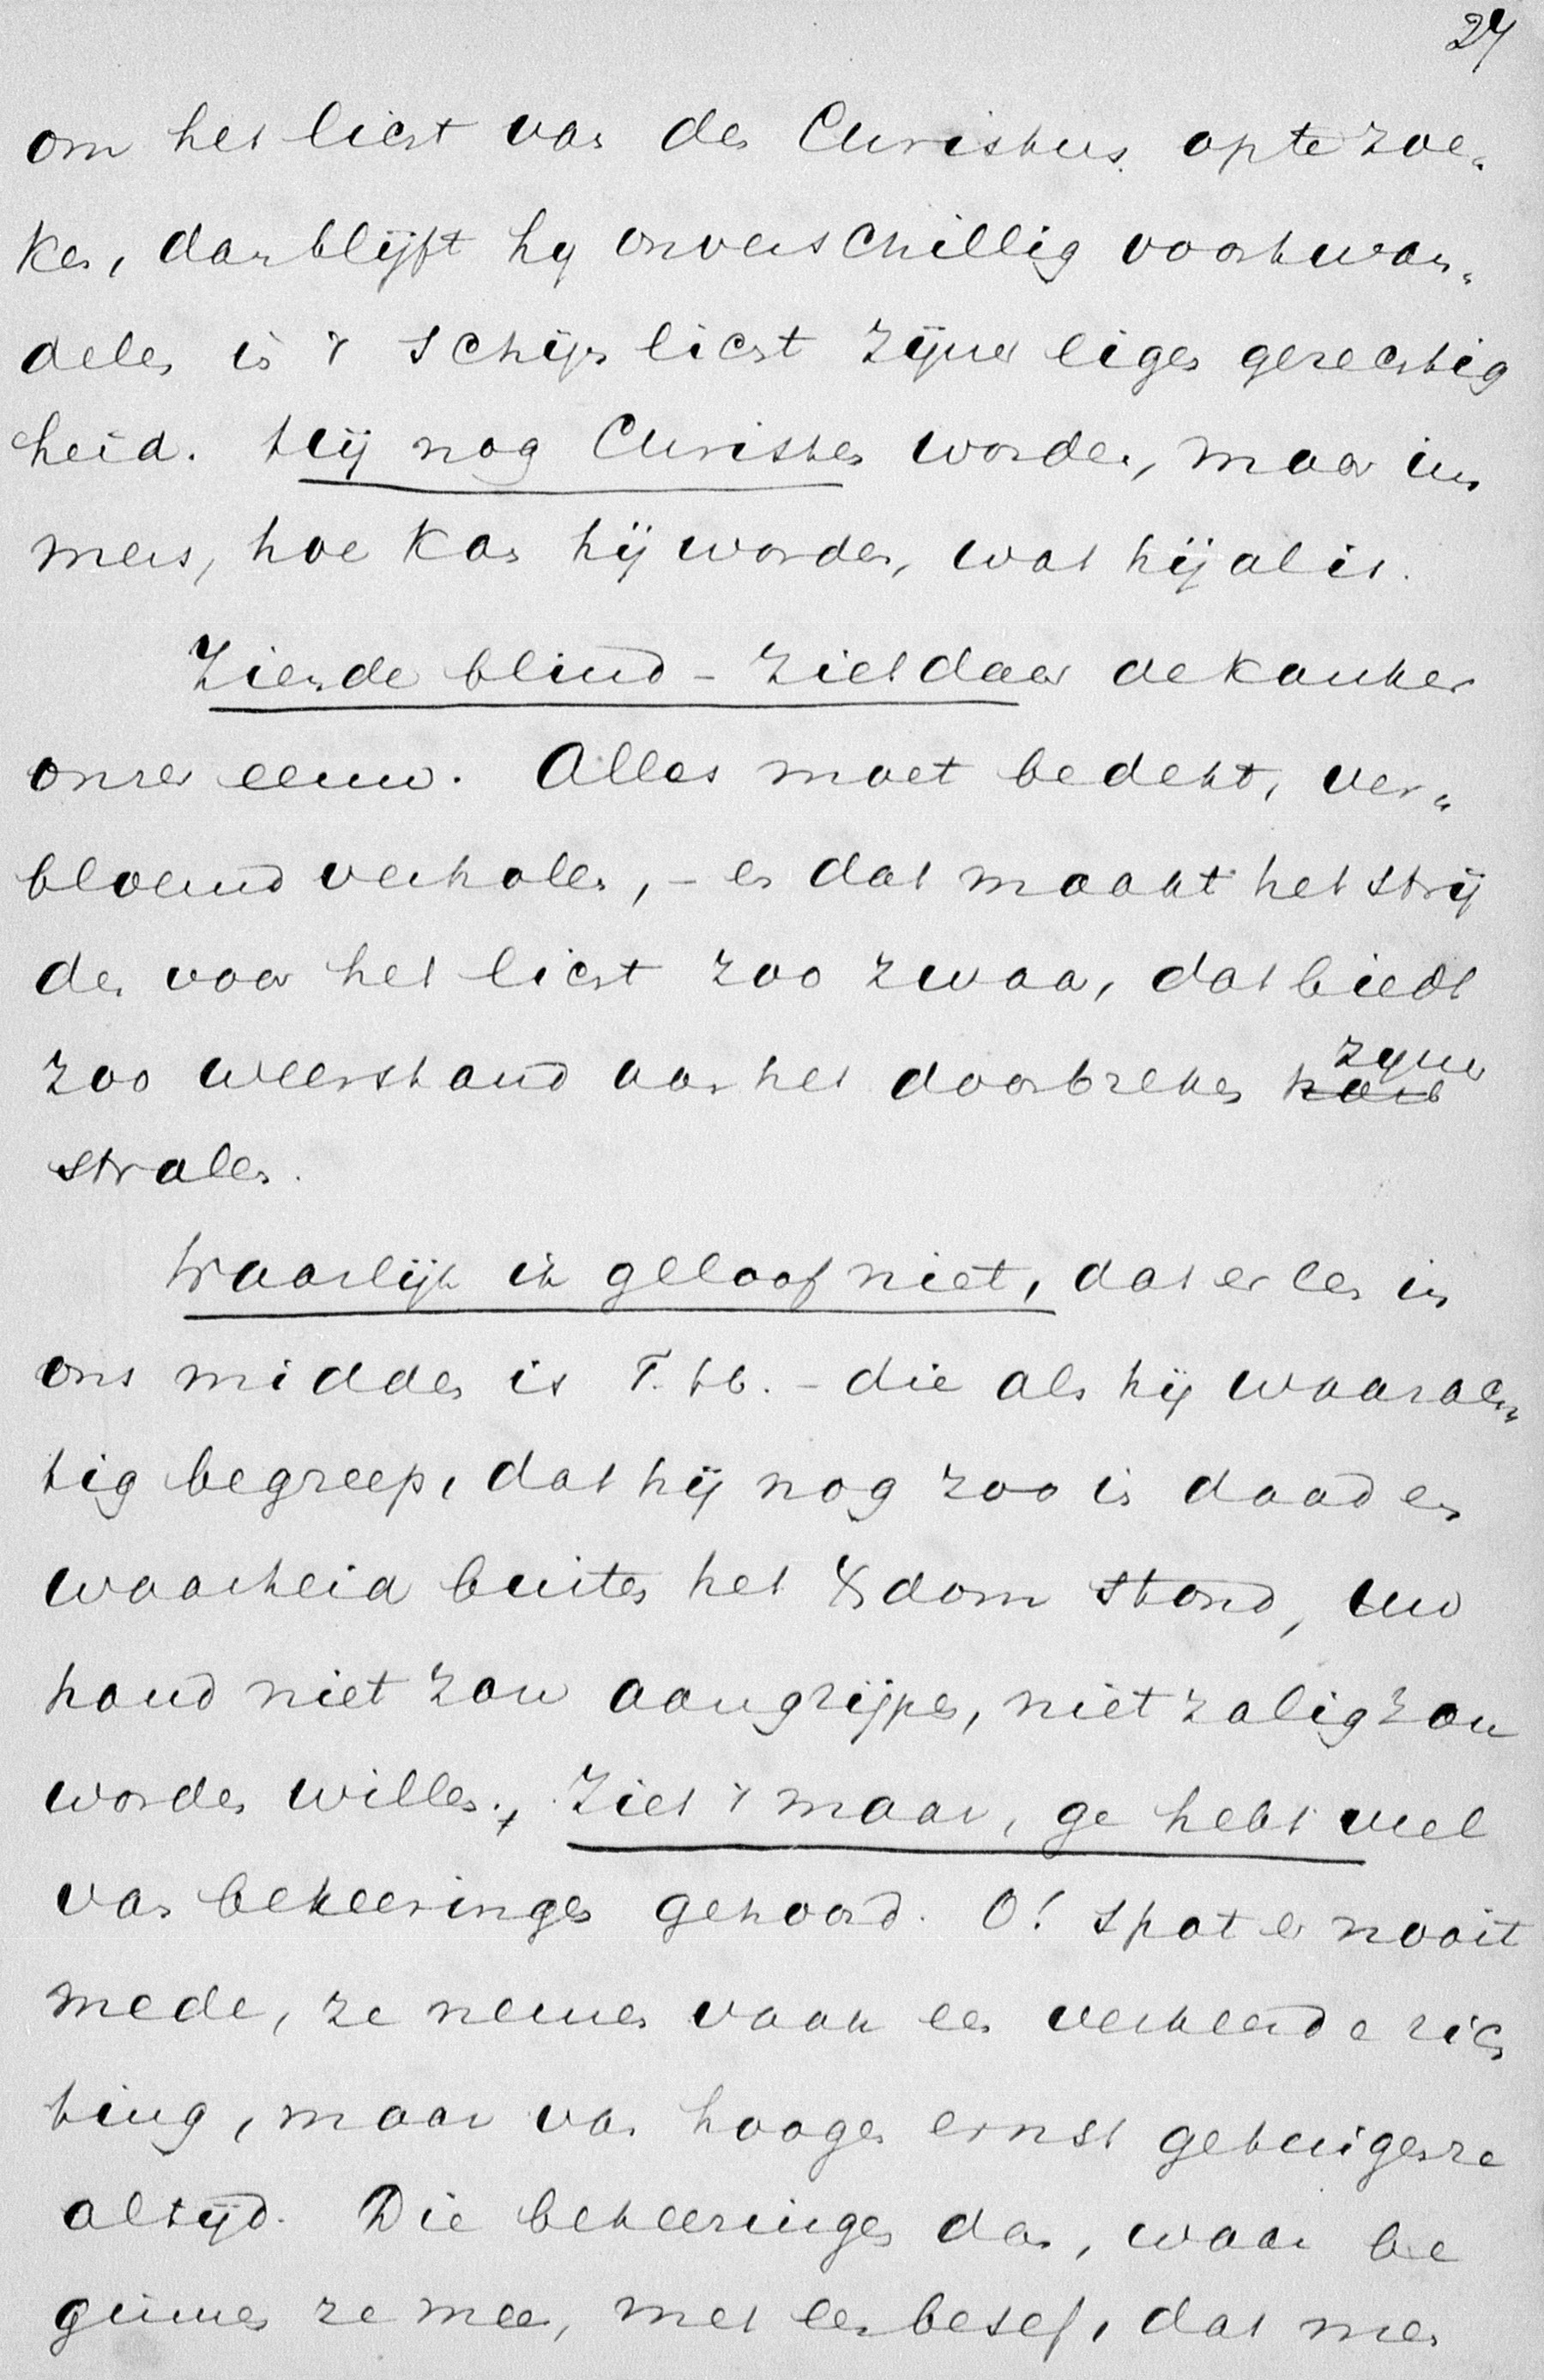 27
om het licht van den Christus op te zoe„
ken, dan blijft hy onverschillig voortwan„
delen in 't schijnlicht zijner eigen gerechtig
heid. Hij nog Christen worden, maar im
mers, hoe kan hij worden, wat hij al is.
Ziende blind – ziet daar de kanker
onzer eeuw. Alles moet bedekt, ver„
bloemd verholen, – en dat maakt het strij
den voor het licht zoo zwaar, dat biedt
zoo weerstand aan het doorbreken zyner
stralen.
Waarlijk ik geloof niet, dat er een in
ons midden is T. H. – die als hij waarach„
tig begreep, dat hij nog zoo in daad en
waarheid buiten het Xdom stond, uw
hand niet zou aangrijpen, niet zalig zou
worden willen. Ziet 't maar, ge hebt veel
van bekeeringen gehoord. O! spot er nooit
mede, ze nemen vaak een verkeerde rich
ting, maar van hoogen ernst getuigen ze
altijd. Die bekeeringen dan, waar be
ginnen ze mee, met een besef, dat men